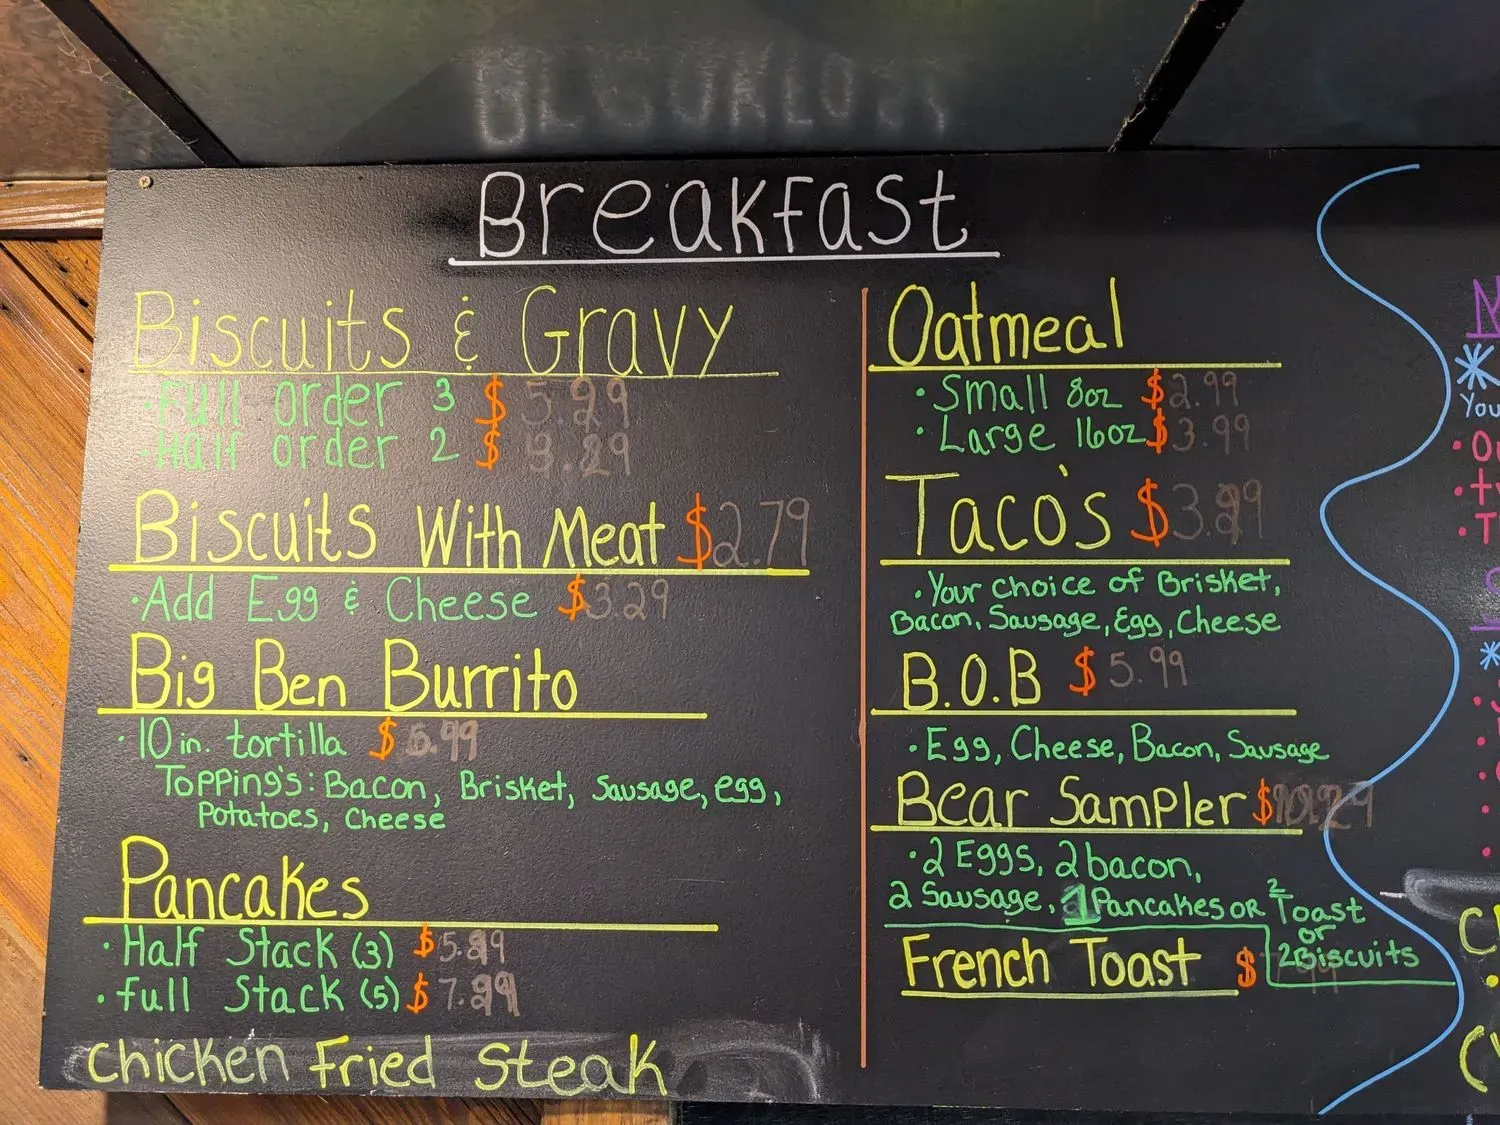 Breakfast
Biscuits & Gravy
• Full order 3 $ 5.29
• Half order 2 $ 3.29
Biscuits With Meat $2.79
• Add Egg & Cheese $3.29
Big Ben Burrito
• 10 in. tortilla $ 6.99
Topping's: Bacon, Brisket, Sausage, egg,
Potatoes, Cheese
Pancakes
• Half Stack (3) $5.29
• full Stack (5) $7.29
Chicken Fried Steak
Oatmeal
• Small 8oz $2.99
• Large 16oz $3.99
Taco's $3.29
• Your choice of Brisket,
Bacon, Sausage, Egg, Cheese
B.O.B $5.99
• Egg, Cheese, Bacon, Sausage
Bear Sampler $
• 2 Eggs, 2 bacon,
2 Sausage, 1 Pancakes or 2 Toast
or
2 Biscuits
French Toast $